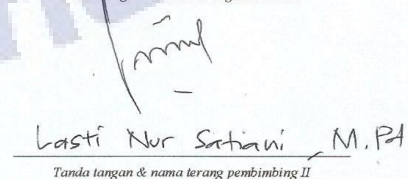 Lasti Nur Satiani, M.Pd
Tanda tangan & nama terang pembimbing II